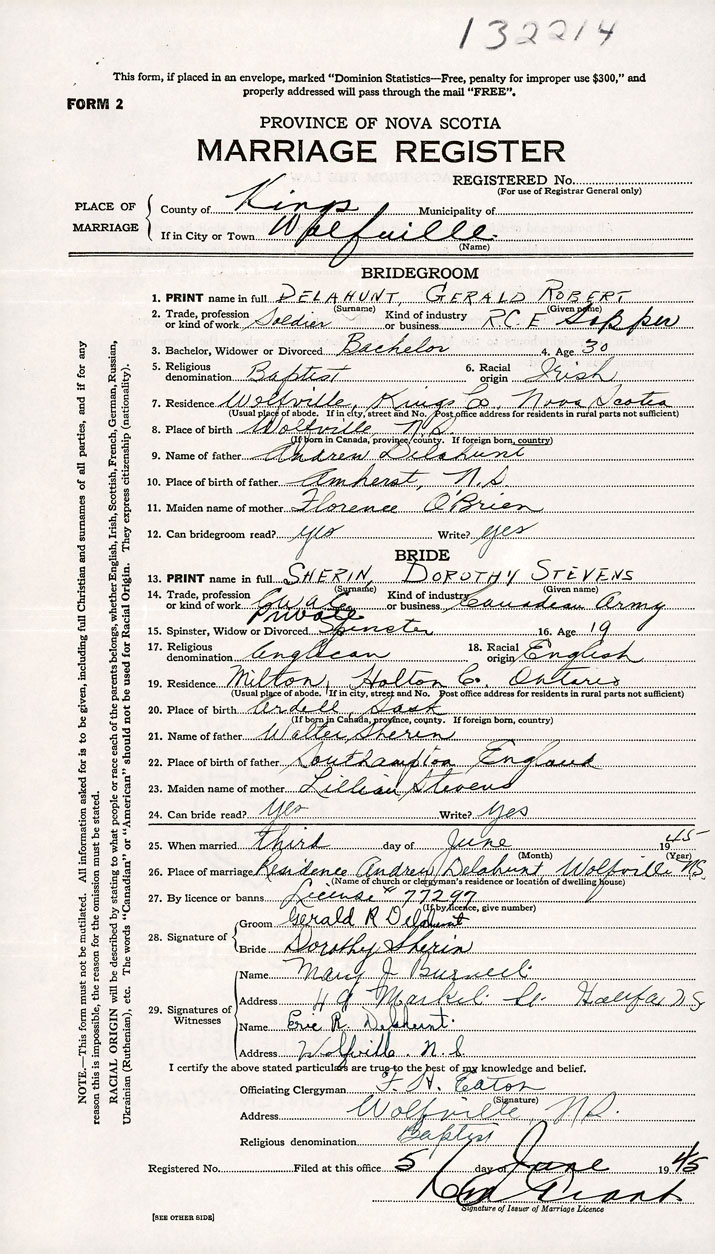 132214
This form, if placed in an envelope, marked "Dominion Statistics—Free, penalty for improper use $300," and
properly addressed will pass through the mail "FREE".
FORM 2
PROVINCE OF NOVA SCOTIA
MARRIAGE REGISTER
REGISTERED No.
(For use of Registrar General only)
PLACE OF MARRIAGE
County of Kings Municipality of
If in City or Town Wolfville
(Name)
BRIDEGROOM
1. PRINT name in full DELAHUNT, GERALD ROBERT
(Surname) (Given name)
2. Trade, profession or kind of work Soldier Kind of industry or business R.C.E Sapper
3. Bachelor, Widower or Divorced Bachelor 4. Age 30
5. Religious denomination Baptist 6. Racial origin Irish
7. Residence Wolfville, Kings Co, Nova Scotia
(Usual place of abode. If in city, street and No. Post office address for residents in rural parts not sufficient)
8. Place of birth Wolfville, N.S.
(If born in Canada, province, county. If foreign born, country)
9. Name of father Andrew Delahunt
10. Place of birth of father Amherst, N.S.
11. Maiden name of mother Florence O'Brien
12. Can bridegroom read? yes Write? yes
BRIDE
13. PRINT name in full SHERIN, DOROTHY STEVENS
(Surname) (Given name)
14. Trade, profession or kind of work C.W.A.C. Private Kind of industry or business Canadian Army
15. Spinster, Widow or Divorced Spinster 16. Age 19
17. Religious denomination Anglican 18. Racial origin English
19. Residence Milton, Halton C. Ontario
(Usual place of abode. If in city, street and No. Post office address for residents in rural parts not sufficient)
20. Place of birth Ardell, Sask
(If born in Canada, province, county. If foreign born, country)
21. Name of father Walter Sherin
22. Place of birth of father Southampton England
23. Maiden name of mother Lillian Stevens
24. Can bride read? Yes Write? Yes
25. When married third day of June 1945
(Month) (Year)
26. Place of marriage Residence Andrew Delahunt Wolfville N.S.
(Name of church or clergyman's residence or location of dwelling house)
27. By licence or banns License # 77297
(If by licence, give number)
28. Signature of
Groom Gerald R Delahunt
Bride Dorothy Sherin
29. Signatures of Witnesses
Name Mary J
Address 49 Market St. Halifax N.S
Name R. Delahunt
Address Wolfville. N.S
I certify the above stated particulars are true to the best of my knowledge and belief.
Officiating Clergyman F. H. Eaton
(Signature)
Address Wolfville, N.S.
Religious denomination Baptist
Registered No. Filed at this office 5 day of June 1945
Grant
Signature of Issuer of Marriage Licence
[SEE OTHER SIDE]
NOTE.—This form must not be mutilated. All information asked for is to be given, including full Christian and surnames of all parties, and if for any
reason this is impossible, the reason for the omission must be stated.
RACIAL ORIGIN will be described by stating to what people or race each of the parents belongs, whether English, Irish, Scottish, French, German, Russian,
Ukrainian (Ruthenian), etc. The words "Canadian" or "American" should not be used for Racial Origin. They express citizenship (nationality).